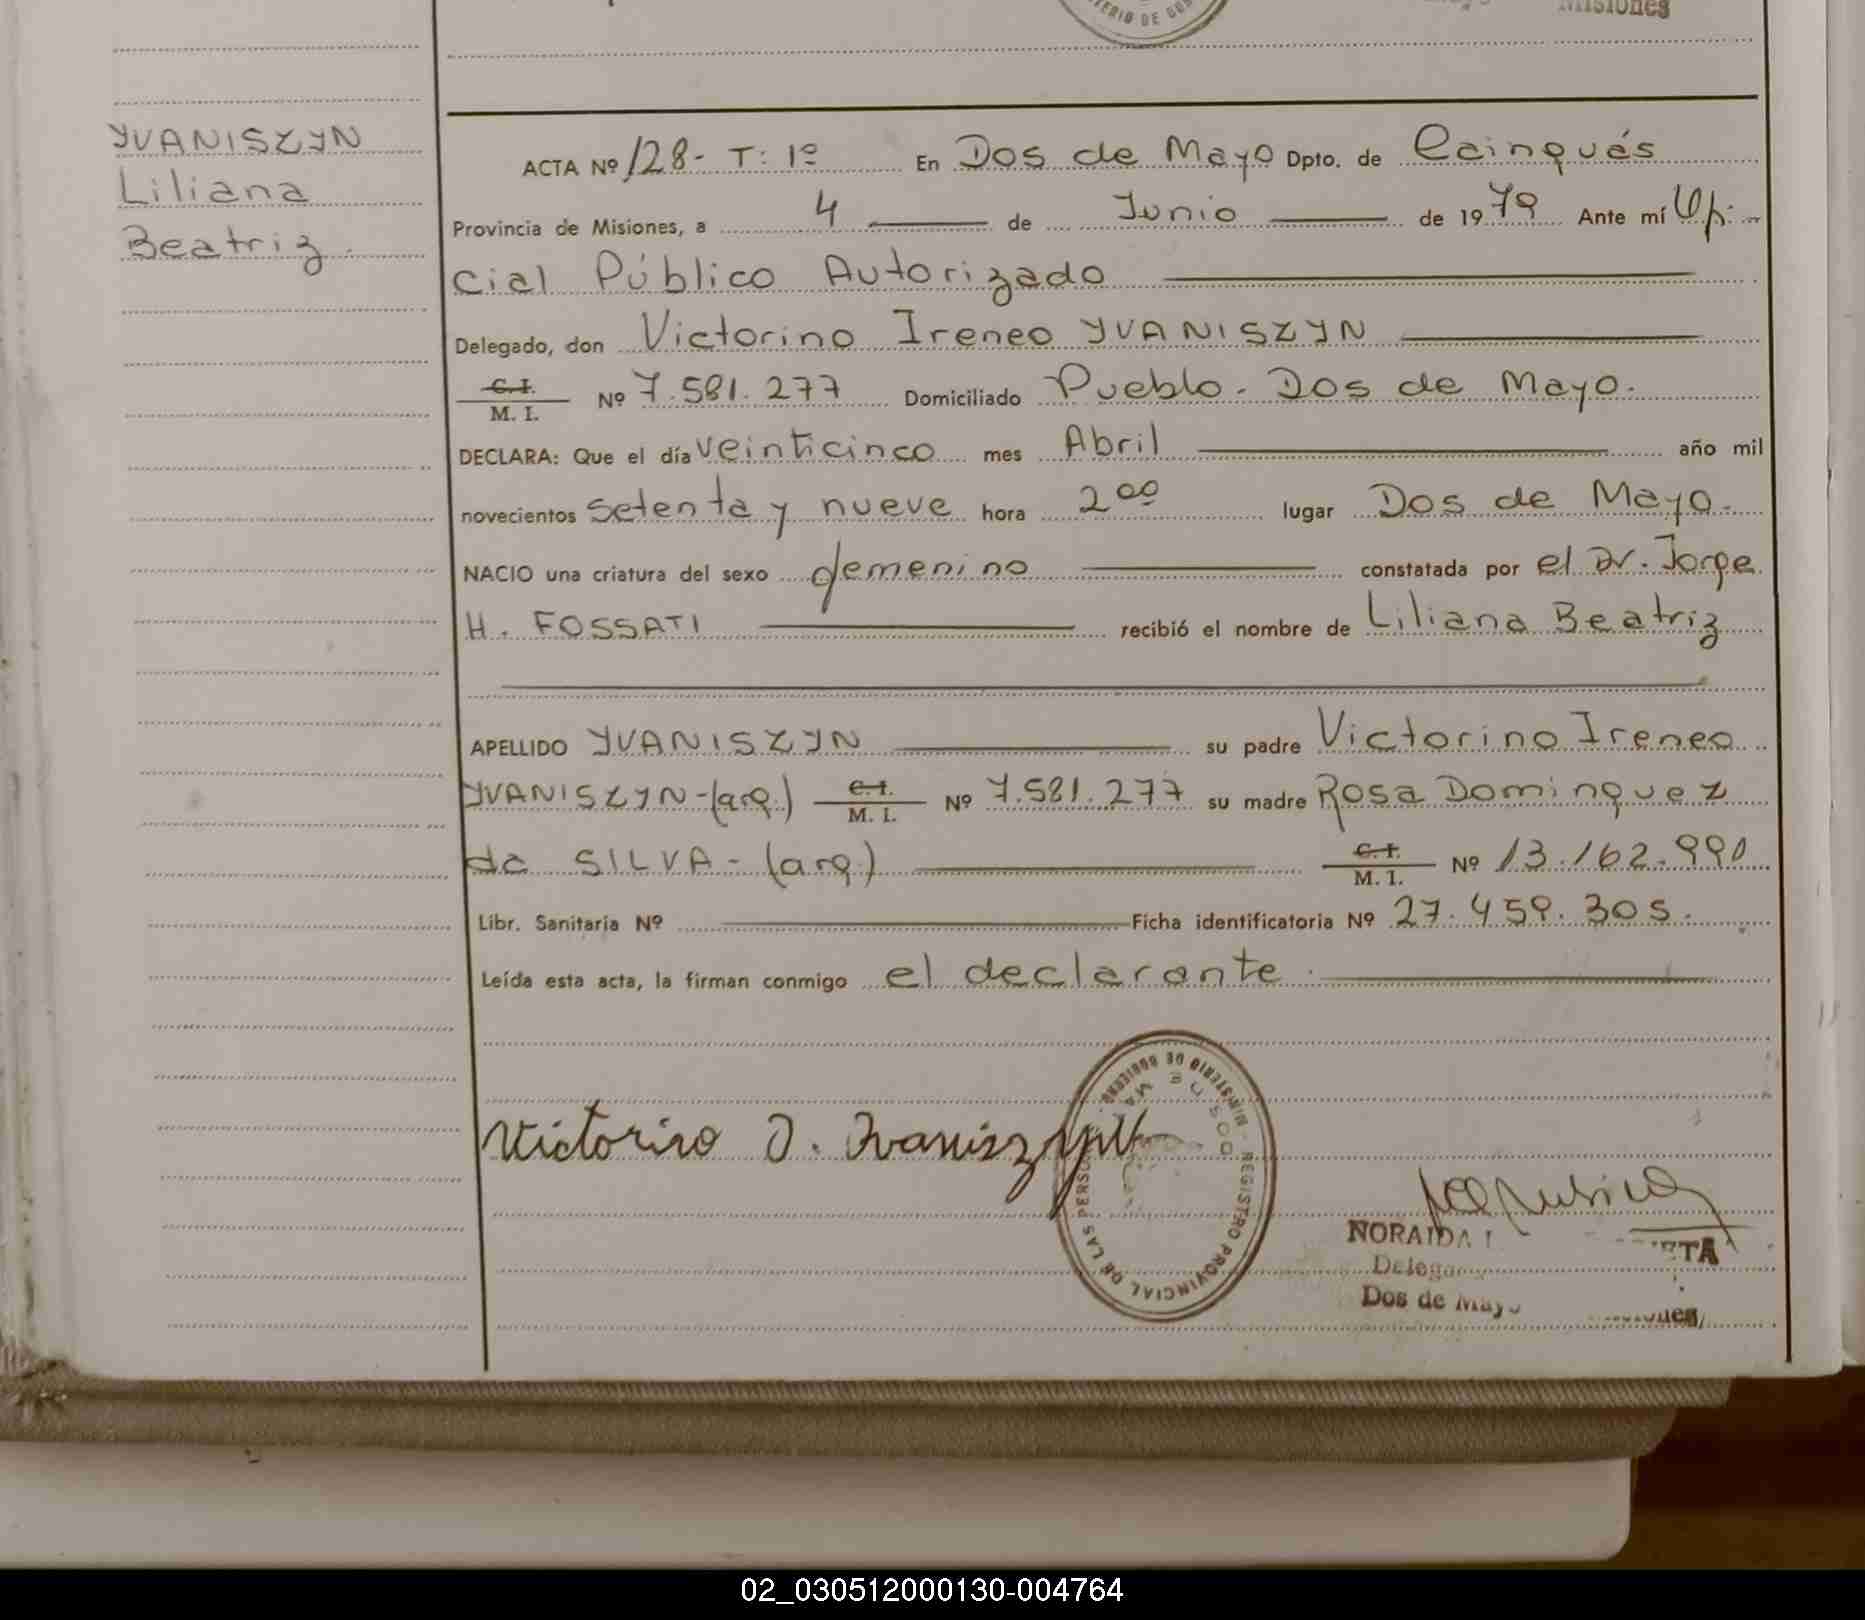 Misiones
YVANISZYN
Liliana
Beatriz
ACTA Nº 128- T: 1º En Dos de Mayo Dpto. de Cainguás
Provincia de Misiones, a 4 de Junio de 1979 Ante mí Ofi-
cial Público Autorizado
Delegado, don Victorino Ireneo YVANISZYN
C. I.
M. I. Nº 7.581.277 Domiciliado Pueblo. Dos de Mayo.
DECLARA: Que el día veinticinco mes Abril año mil
novecientos setenta y nueve hora 2⁰⁰ lugar Dos de Mayo.
NACIO una criatura del sexo femenino constatada por el Dr. Jorge
H. FOSSATI recibió el nombre de Liliana Beatriz
APELLIDO YVANISZYN su padre Victorino Ireneo
YVANISZYN-(arg.) C. I. M. I. Nº 7.581.277 su madre Rosa Dominguez
da SILVA-(arg.) C. I. M. I. Nº 13.162.990
Libr. Sanitaria Nº Ficha identificatoria Nº 27.459.305.
Leída esta acta, la firman conmigo el declarante.
MINISTERIO DE GOBIERNO - REGISTRO PROVINCIAL DE LAS PERSONAS
DOS DE MAYO
Victorino I. Ivaniszyn
NORAIDA
Delega
Dos de Mayo
02_030512000130-004764